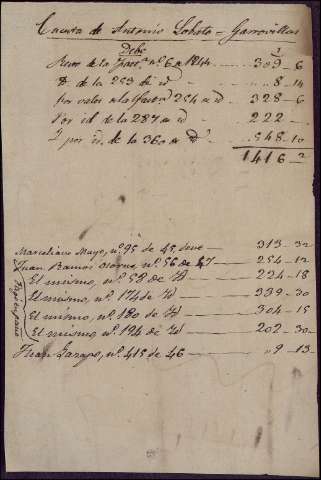 Cuenta de Antonio Lobato = Garrovillas
Debe
de la Fact.ª nº 6 de 1844 309-6
D. de la 253 de id 8-14
Por valor de la factª 254 de id 328-6
Por id. de la 287 de id 222-
Y por id. de la 360 de id 548-10
1416-2
Marceliano Mayo, nº 95 de 45, deve 313-32
Juan Ramos nº 56 de 47 254-12
El mismo, nº 58 de id 224-18
El mismo, nº 174 de id 339-30
El mismo, nº 180 de id 304-15
El mismo, nº 194 de id 202-30
Juan nº 415 de 46 09-13